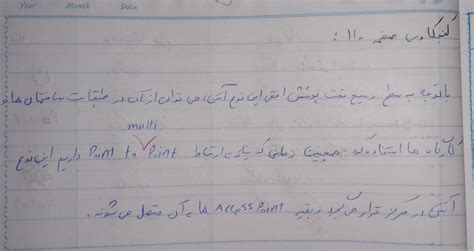 Year Month Date
کنجکاوی صفحه ۱۱۰ :
باتوجه به سطح وسیع تحت پوشش افقی این نوع آنتن، می توان از آن در طبقات ساختمان ها و
multi
کارگاه ها استفاده کرد. همچنین زمانی که نیاز به ارتباط Point to Point داریم این نوع
آنتن در مرکز قرار می گیرد و بقیه Access Point ها به آن متصل می شوند.